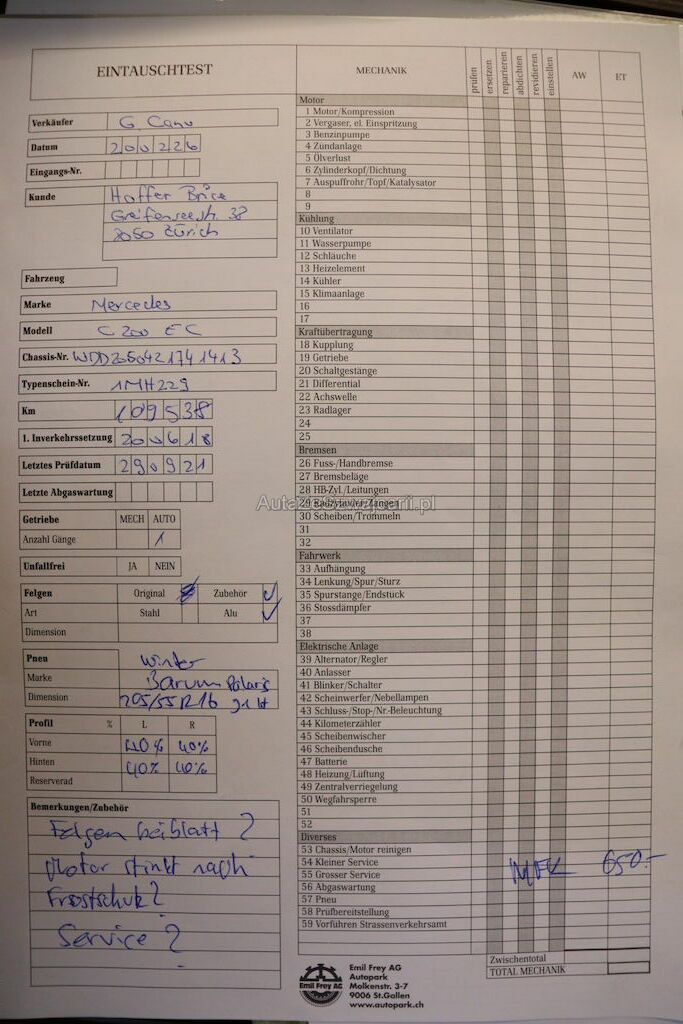 EINTAUSCHTEST
Verkäufer G. Cano
Datum 200226
Eingangs-Nr.
Kunde Hoffer Brice
Greifenseestr. 38
8050 Zürich
Fahrzeug
Marke Mercedes
Modell C 200 EC
Chassis-Nr. WDD2050421741413
Typenschein-Nr. 1MH229
Km 109538
1. Inverkehrssetzung 200618
Letztes Prüfdatum 290921
Letzte Abgaswartung
Getriebe MECH AUTO
Anzahl Gänge 1
Unfallfrei JA NEIN
Felgen Original Zubehör ✓
Art Stahl Alu ✓
Dimension
Pneu Winter
Marke Barum Polaris
Dimension 205/55 R16 91 H
Profil % L R
Vorne 40% 40%
Hinten 40% 40%
Reserverad
Bemerkungen/Zubehör
Felgen beiblatt ?
Motor stinkt nach
Frostschutz?
Service ?
MECHANIK prüfen ersetzen reparieren abdichten revidieren einstellen AW ET
Motor
1 Motor/Kompression
2 Vergaser, el. Einspritzung
3 Benzinpumpe
4 Zündanlage
5 Ölverlust
6 Zylinderkopf/Dichtung
7 Auspuffrohr/Topf/Katalysator
8
9
Kühlung
10 Ventilator
11 Wasserpumpe
12 Schläuche
13 Heizelement
14 Kühler
15 Klimaanlage
16
17
Kraftübertragung
18 Kupplung
19 Getriebe
20 Schaltgestänge
21 Differential
22 Achswelle
23 Radlager
24
25
Bremsen
26 Fuss-/Handbremse
27 Bremsbeläge
28 HB-Zyl./Leitungen
29 Radzylinder/Zangen
30 Scheiben/Trommeln
31
32
Fahrwerk
33 Aufhängung
34 Lenkung/Spur/Sturz
35 Spurstange/Endstück
36 Stossdämpfer
37
38
Elektrische Anlage
39 Alternator/Regler
40 Anlasser
41 Blinker/Schalter
42 Scheinwerfer/Nebellampen
43 Schluss-/Stop-/Nr.-Beleuchtung
44 Kilometerzähler
45 Scheibenwischer
46 Scheibendusche
47 Batterie
48 Heizung/Lüftung
49 Zentralverriegelung
50 Wegfahrsperre
51
52
Diverses
53 Chassis/Motor reinigen
54 Kleiner Service
55 Grosser Service MFK 650.-
56 Abgaswartung
57 Pneu
58 Prüfbereitstellung
59 Vorführen Strassenverkehrsamt
Zwischentotal
TOTAL MECHANIK
Emil Frey AG
Emil Frey AG
Autopark
Molkenstr. 3-7
9006 St.Gallen
www.autopark.ch